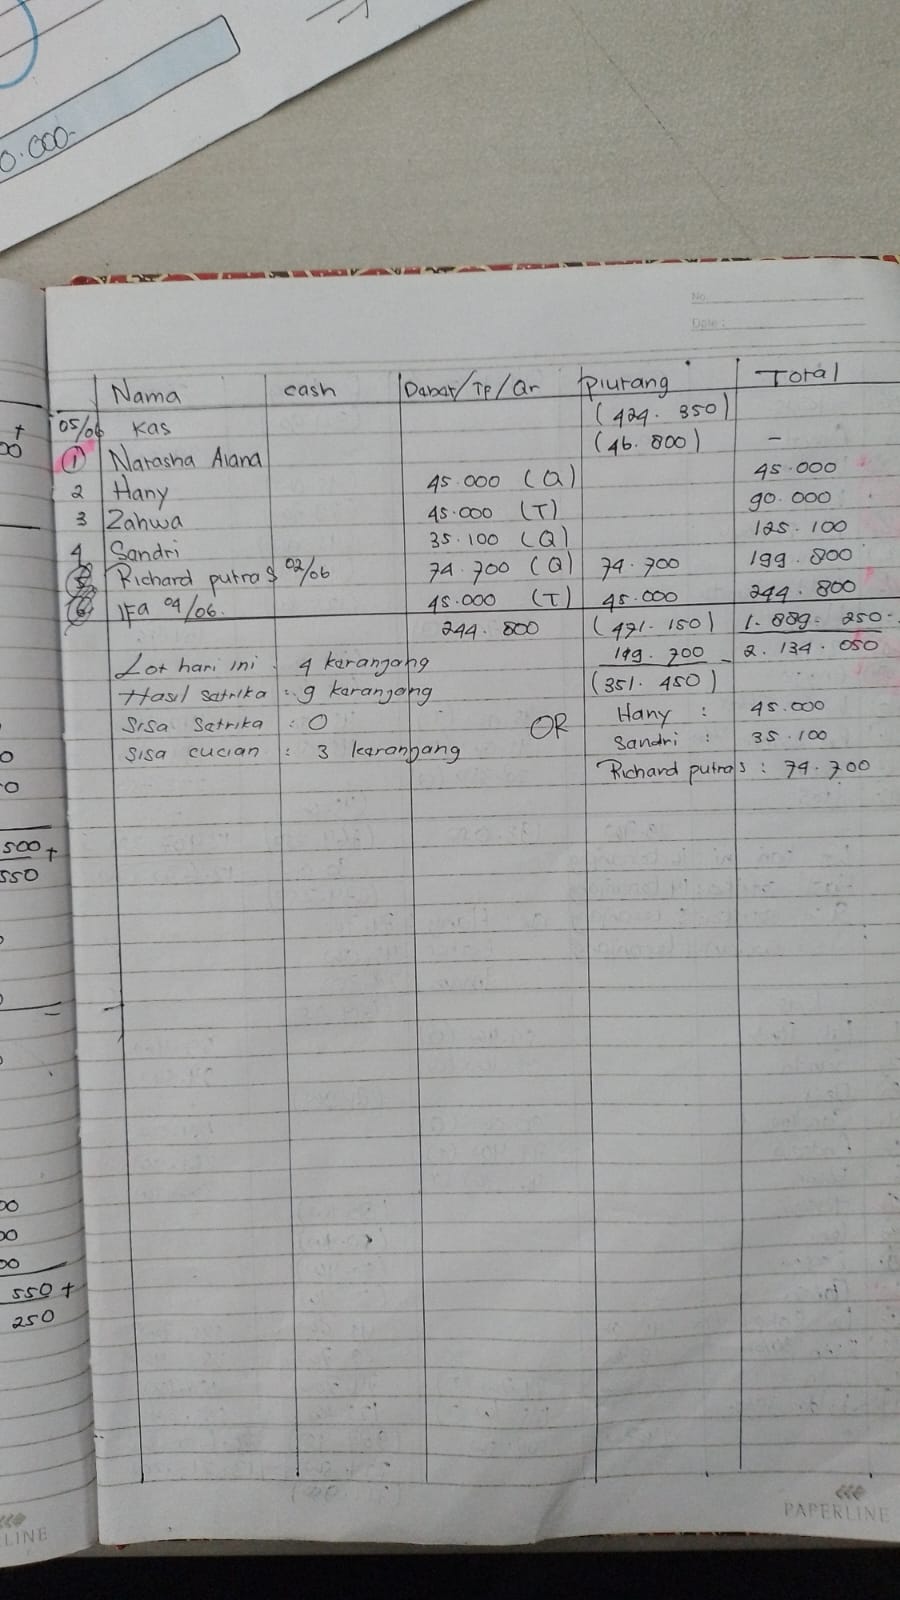 0.000-
No.
Date :
Nama cash Debet/Tf/Qr Piutang Total
05/06 Kas (424.350)
1 Natasha Alana (46.800) -
2 Hany 45.000 (Q) 45.000
3 Zahwa 45.000 (T) 90.000
4 Sandri 35.100 (Q) 125.100
5 Richard putra S 02/06 74.700 (Q) 74.700 199.800
6 Ifa 04/06. 45.000 (T) 45.000 244.800
244.800 (471.150) 1.889.250-
Lot hari ini : 4 keranjang 119.700 - 2.134.050
Hasil Setrika : 9 keranjang (351.450)
Sisa Setrika : 0 QR Hany : 45.000
Sisa cucian : 3 keranjang Sandri : 35.100
Richard putra S : 74.700
500 +
550
00
00
00
550 +
250
PAPERLINE
LINE